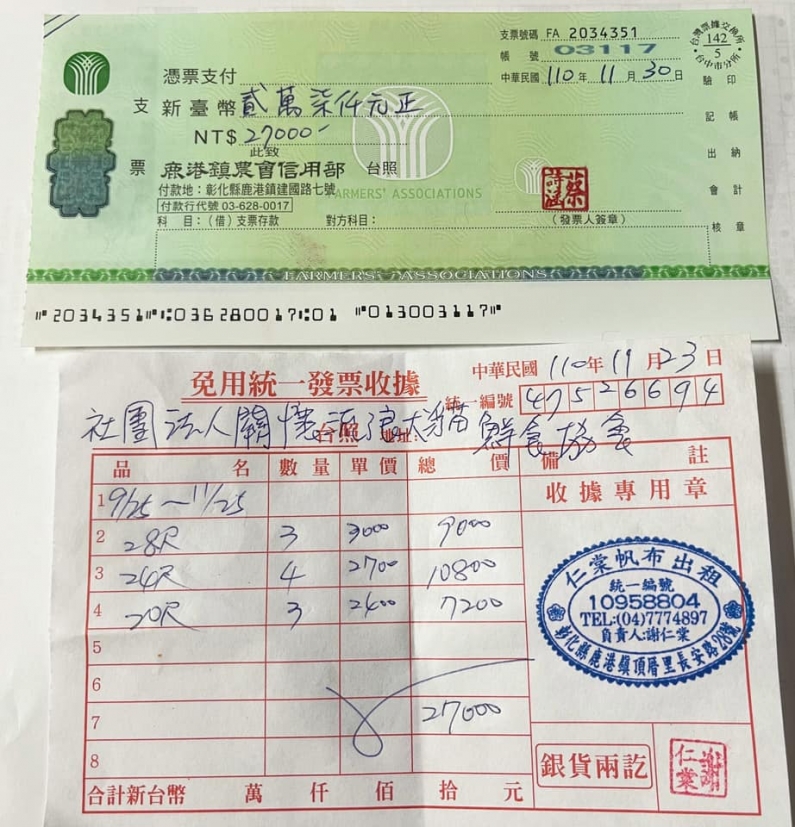 支票號碼 FA 2034351
帳號 03117
中華民國 110 年 11 月 30 日
台灣票據交換所
142
5
台中市分所
憑票支付
支票
新臺幣 貳萬柒仟元正
NT$ 27000-
此致
鹿港鎮農會信用部 台照
付款地：彰化縣鹿港鎮建國路七號
FARMERS' ASSOCIATIONS
付款行代號 03-628-0017
科 目：(借) 支票存款 對方科目：
(發票人簽章)
驗印
記帳
出納
會計
核章
FARMERS' ASSOCIATIONS
⑈2034351⑈⑆036280017⑆01 ⑈013003117⑈
免用統一發票收據
中華民國 110 年 11 月 23 日
統一編號 47526694
社團法人關懷流浪犬貓鮮食協會
台照 地址：
品名 數量 單價 總價 備註
1 9/25～11/25
2 28尺 3 3000 9000
3 24尺 4 2700 10800
4 20尺 3 2400 7200
5
6
7 27000
8
合計新台幣 萬 仟 佰 拾 元
收據專用章
仁棠帆布出租
統一編號
10958804
TEL:(04)7774897
負責人:謝仁棠
彰化縣鹿港鎮頂厝里長安路28號
銀貨兩訖
謝仁棠